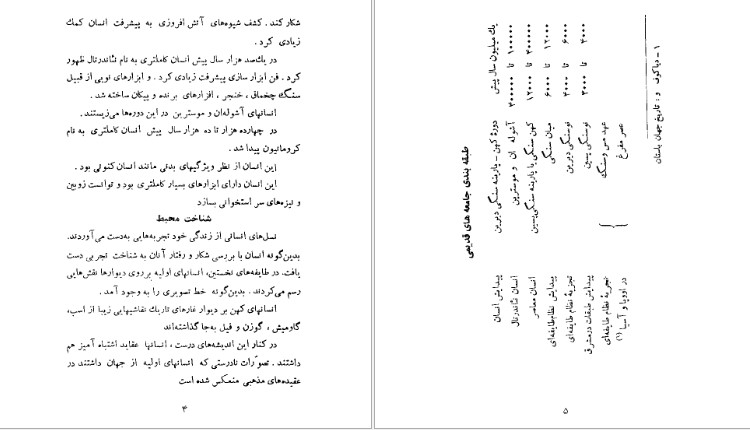 شکار کنند. کشف شیوه‌های آتش افروزی به پیشرفت انسان کمك
زیادی کرد.
در یك‌صد هزار سال پیش انسان کاملتری به نام نئاندرتال ظهور
کرد. فن ابزار سازی پیشرفت زیادی کرد. و ابزارهای نوبی از قبیل
سنگ چخماق، خنجر، افزارهای برنده و پیکان ساخته شد.
انسانهای آشوله‌ان و موسترین در این دوره‌ها می‌زیستند.
در چهارده هزار تا ده هزار سال پیش انسان کاملتری به نام
کرومانیون پیدا شد.
این انسان از نظر ویژگیهای بدنی مانند انسان کنونی بود.
این انسان دارای ابزارهای بسیار کاملتری بود و توانست زوبین
و نیزه‌های سر استخوانی بسازد
شناخت محیط
نسل‌های انسانی از زندگی خود تجربه‌هایی به‌دست می‌آوردند.
بدین‌گونه انسان با بررسی شکار و رفتار آنان به شناخت تجربی دست
یافت. در طایفه‌های نخستین، انسانهای اولیه بر روی دیوارها نقش‌هایی
رسم می‌کردند. بدین‌گونه خط تصویری را به وجود آمد.
انسانهای کهن بر دیوار غارهای تاریك نقاشیهایی زیبا از اسب،
گاومیش، گوزن و فیل به‌جا گذاشته‌اند
در کنار این اندیشه‌های درست، انسانها عقاید اشتباه آمیز هم
داشتند. تصوّرات نادرستی که انسانهای اولیه از جهان داشتند در
عقیده‌های مذهبی منعکس شده است
۴
طبقه بندی جامعه های قدیمی
یك میلیون سال پیش
دوره کهن - پارینه سنگی دیرین
پیدایش انسان
۱۰۰۰۰۰ تا ۴۰۰۰۰۰
آشوله ان و موسترین
انسان نئاندرتال
۴۰۰۰۰۰ تا ۱۲۰۰۰
کهن سنگی یا پارینه سنگی پسین
انسان معاصر
۱۲۰۰۰ تا ۶۰۰۰
میان سنگی
پیدایش نظام طایفه‌ای
۶۰۰۰ تا ۴۰۰۰
نوسنگی دیرین
تجزیهٔ نظام طایفه‌ای
۴۰۰۰ تا ۳۰۰۰
نوسنگی پسین
پیدایش طبقات در مشرق
عهد مس و سنگ
تجزیهٔ نظام طایفه‌ای
عصر مفرغ
در اروپا و آسیا (۱)
۱ - دیاکوف و: تاریخ جهان باستان
۵